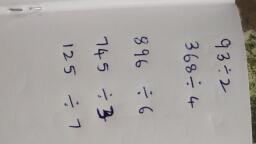 93÷2
368÷4
896 ÷6
745 ÷3
125 ÷7